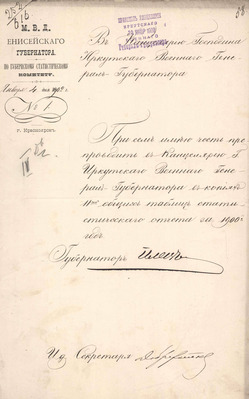 58
М. В. Д.
ЕНИСЕЙСКАГО
ГУБЕРНАТОРА.
ПО ГУБЕРНСКОМУ СТАТИСТИЧЕСКОМУ
КОМИТЕТУ.
Января 4 дня 1908 г.
№ 1
г. Красноярскъ.
Въ Канцелярію Господина
Иркутскаго Военнаго Гене-
ралъ-Губернатора.
При семъ имѣю честь пре-
проводить въ Канцелярію Г.
Иркутскаго Военнаго Гене-
ралъ Губернатора въ копіяхъ
общихъ таблицъ стати-
стическаго отчета за 1906
годъ
Губернаторъ
И. д. Секретаря